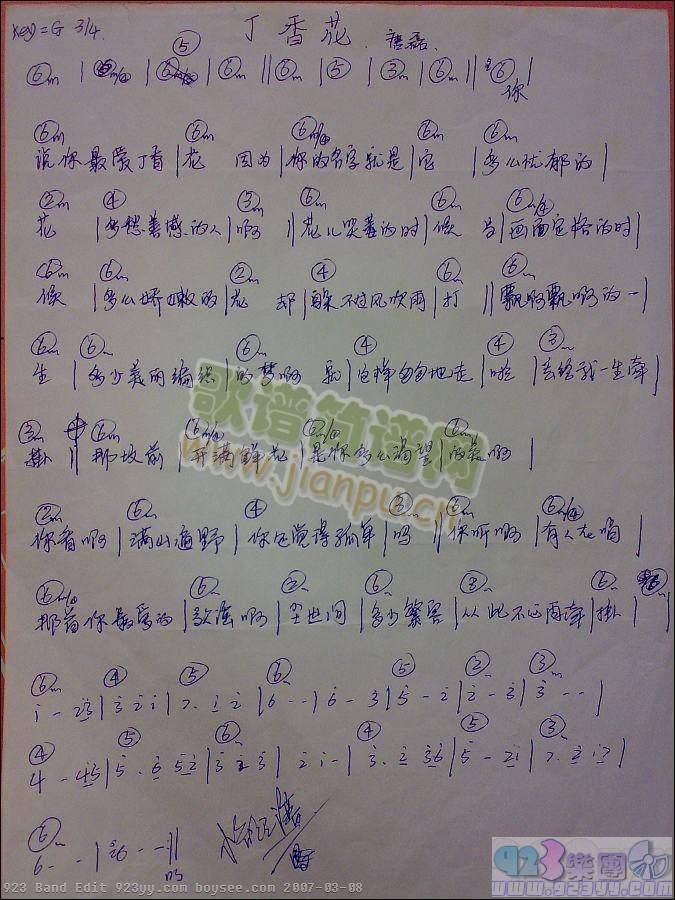 Key=G 3/4. 丁香花 . 唐磊.
⑥m | ⑥m/④ | ⑤ | ⑥m || ⑥m | ⑤ | ③m | ⑥m || ⑥
你
⑥m ⑥m ⑥m/④ ⑥m ⑥m
说你最爱丁香 | 花 因为 | 你的名字就是 | 它 | 多么忧郁的 |
②m ④ ③m ⑥m ⑥m/④
花 | 多愁善感的人 | 啊 || 花儿哭萎的时 | 候 当 | 画面定格的时 |
⑥m ⑥m ②m ④ ⑥m ⑥m
候 | 多么娇嫩的 | 花 却 | 躲不过风吹雨 | 打 || 飘啊飘啊的一 |
⑥m ⑥m ⑥m ④ ④ ③m
生 | 多少美丽编织 | 的梦啊 就 | 这样匆匆地走 | 啦 | 去给我一生牵 |
③m ⑥m ⑥m/④ ⑥m/④ ⑥m
掛 || 那坟前 | 开满鲜花 | 是你多么渴望 | 的美啊 |
②m ⑥m ④ ③m ⑥m ⑥m/④
你看啊 | 满山遍野 | 你还觉得孤单 | 吗 || 你听啊 | 有人在唱 |
⑥m/④ ⑥m ②m ⑥m ③m ⑥m
那首你最爱的 | 歌谣啊 | 尘世间 | 多少繁杂 | 从此不必再牵 | 掛 |
⑥m ④ ⑤ ⑥m ⑤ ②m ③m
i - 23 | 3 2 i | 7. i 2 | 6 - - | 6 - 3 | 5 - 2 | 2 - 3 | 3 - - |
④ ⑤ ⑥m ④ ⑤ ③m
4 - 45 | 5 . 6 52 | 3 2 3 | 2 i - | 3. 2 36 | 5 - 2i |
⑥m
6 - - | 26 - - ||
吗
歌谱简谱网
www.jianpu.cn
923 Band Edit 923yy.com boysee.com 2007-03-08
923樂團
www.923yy.com